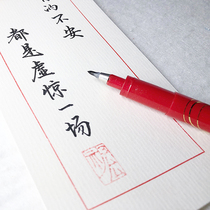 不安
都是虚惊一场